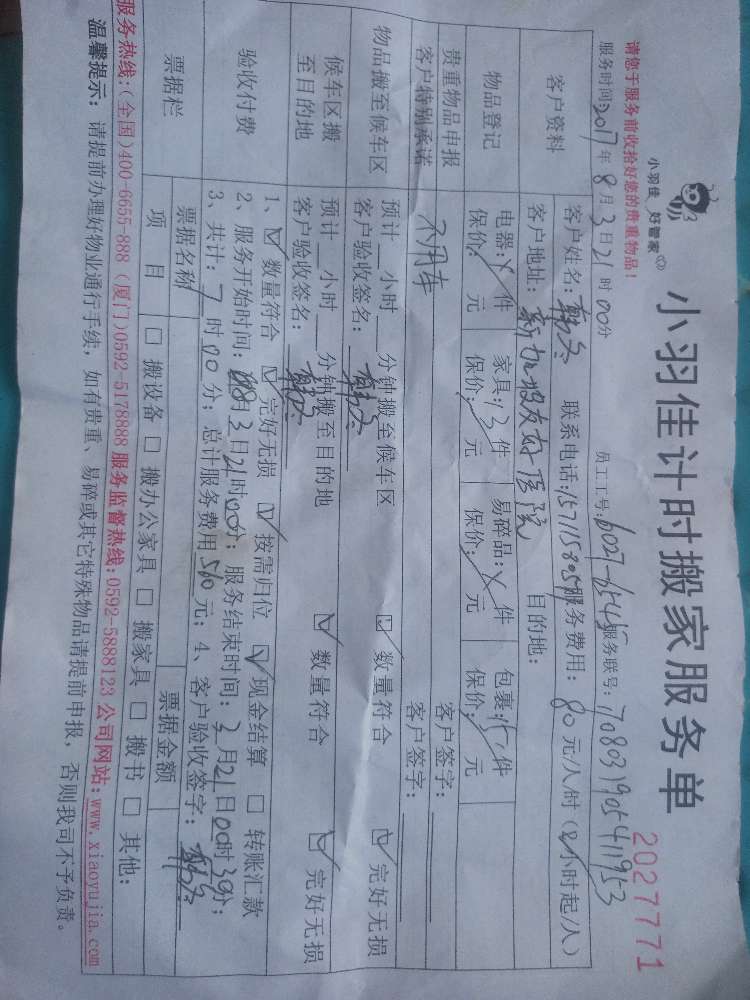 小羽佳 好管家
小羽佳计时搬家服务单
2027771
请您于服务前收拾好您的贵重物品！
员工工号: 6027-6545 服务联号: 170803190541953
服务时间2017年8月3日21时00分
客户资料
客户姓名: 联系电话: 服务费用: 80元/人/时(2小时起/人)
客户地址: 新加坡友好医院 目的地:
物品登记
电器: 件 家具: 13件 易碎品: 件 包裹: 15件
保价: 元 保价: 元 保价: 元 保价: 元
贵重物品申报 客户签字:
客户特别承诺 不用车 客户签字:
物品搬至候车区
预计 小时 分钟搬至候车区 ☑ 数量符合 ☑ 完好无损
客户验收签名:
候车区搬至目的地
预计 小时 分钟搬至目的地 ☑ 数量符合 ☑ 完好无损
客户验收签名:
验收付费
1、☑ 数量符合 ☑ 完好无损 ☑ 按需归位 ☑ 现金结算 □ 转账汇款
2、服务开始时间: 8月3日21时00分; 服务结束时间: 3月21日00时30分;
3、共计: 7时00分; 总计服务费用560元; 4、客户验收签字:
票据栏
票据名称 票据金额
项目 □ 搬设备 □ 搬办公家具 □ 搬家具 □ 搬书 □ 其他:
服务热线:(全国)400-6655-888 (厦门)0592-5178888 服务监督热线:0592-5888123 公司网站:www.xiaoyujia.com
温馨提示: 请提前办理好物业通行手续, 如有贵重、易碎或其它特殊物品请提前申报, 否则我司不予负责。